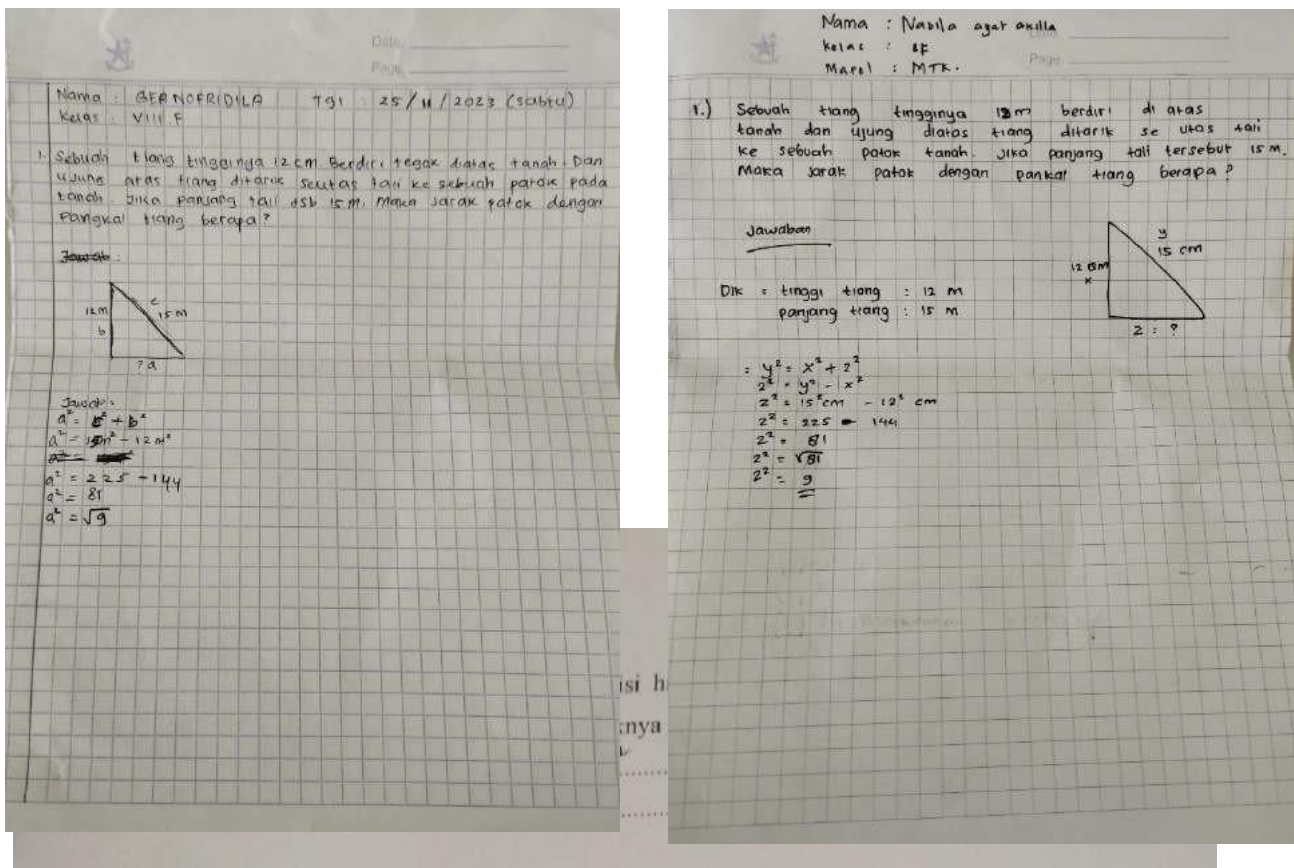 Date
Page
Nama : GEA NOFRIDILA Tgl : 25/11/2023 (Sabtu)
Kelas : VIII F
1. Sebuah tiang tingginya 12 cm Berdiri tegak diatas tanah. Dan
ujung atas tiang ditarik seutas tali ke sebuah patok pada
tanah. Jika panjang tali tsb 15 m. Maka jarak patok dengan
Pangkal tiang berapa?
Jawab :
c
12 m
15 m
b
? a
Jawab :
a² = c² + b²
a² = 15m² - 12 m²
a² = 225 - 144
a² = 81
a² = √9
Nama : Nabila
Kelas : 8F
Mapel : MTK.
Page
1.) Sebuah tiang tingginya 12 m berdiri di atas
tanah dan ujung diatas tiang ditarik se utas tali
ke sebuah patok tanah. Jika panjang tali tersebut 15 m.
Maka jarak patok dengan pankal tiang berapa?
Jawaban
y
15 cm
12 cm
x
Dik = tinggi tiang : 12 m
panjang tiang : 15 m
z : ?
= y² = x² + z²
z² = y² - x²
z² = 15² cm - 12² cm
z² = 225 - 144
z² = 81
z² = √81
z² = 9
isi h
knya